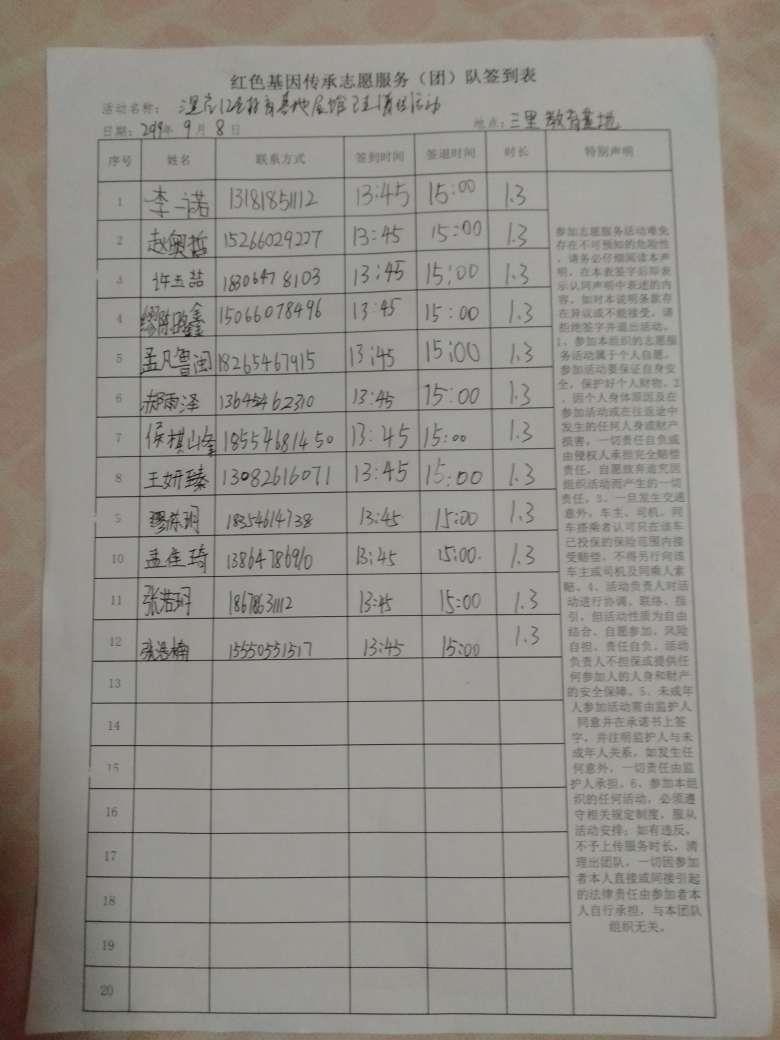 红色基因传承志愿服务（团）队签到表
活动名称：
日期： 年 9 月 8 日 地点：三里教育基地
序号 姓名 联系方式 签到时间 签退时间 时长 特别声明
1 李一诺 13181851112 13:45 15:00 1.3
2 赵奥哲 15266029227 13:45 15:00 1.3
许玉喆 18306478103 13:45 15:00 1.3
4 缪陈皓鑫 15066078496 13:45 15:00 1.3
5 孟凡鲁闽 18265467915 13:45 15:00 1.3
6 郝雨泽 13645462310 13:45 15:00 1.3
7 侯棋山峰 18554681450 13:45 15:00 1.3
8 王妍臻 13082616071 13:45 15:00 1.3
缪陈玥 18354614738 13:45 15:00 1.3
10 孟佳琦 13864786910 13:45 15:00. 1.3
11 张浩玥 18678631112 13:45 15:00 1.3
12 张浩楠 15550551517 13:45 15:00 1.3
13
14
15
16
17
18
19
20
参加志愿服务活动难免
存在不可预知的危险性
，请务必仔细阅读本声
明，在本表签字后即表
示认同声明中表述的内
容，如对本说明条款存
在异议或不能接受，请
拒绝签字并退出活动。
1、参加本组织的志愿服
务活动属于个人自愿，
参加活动要保证自身安
全，保护好个人财物。2
、因个人身体原因及在
参加活动或在往返途中
发生的任何人身或财产
损害，一切责任自负或
由侵权人承担完全赔偿
责任，自愿放弃追究因
组织活动而产生的一切
责任。3、一旦发生交通
意外，车主、司机、同
车搭乘者认可只在该车
已投保的保险范围内接
受赔偿，不得另行向该
车主或司机及同乘人索
赔。4、活动负责人对活
动进行协调、联络、指
引，但活动性质为自由
结合、自愿参加、风险
自担、责任自负，活动
负责人不担保或提供任
何参加人的人身和财产
的安全保障。5、未成年
人参加活动需由监护人
同意并在承诺书上签
字，并注明监护人与未
成年人关系，如发生任
何意外，一切责任由监
护人承担。6、参加本组
织的任何活动，必须遵
守相关规定制度，服从
活动安排；如有违反，
不予上传服务时长，清
理出团队，一切因参加
者本人直接或间接引起
的法律责任由参加者本
人自行承担，与本团队
组织无关。